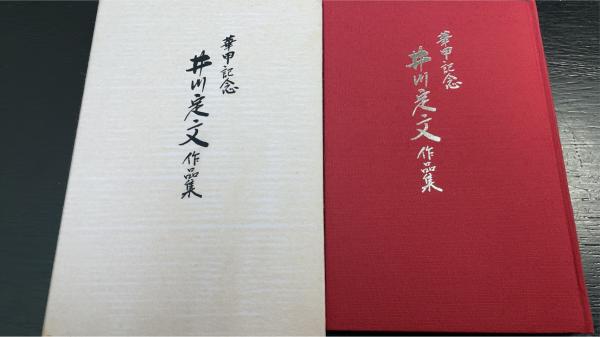 華甲記念
井川定文
作品集
華甲記念
井川定文
作品集